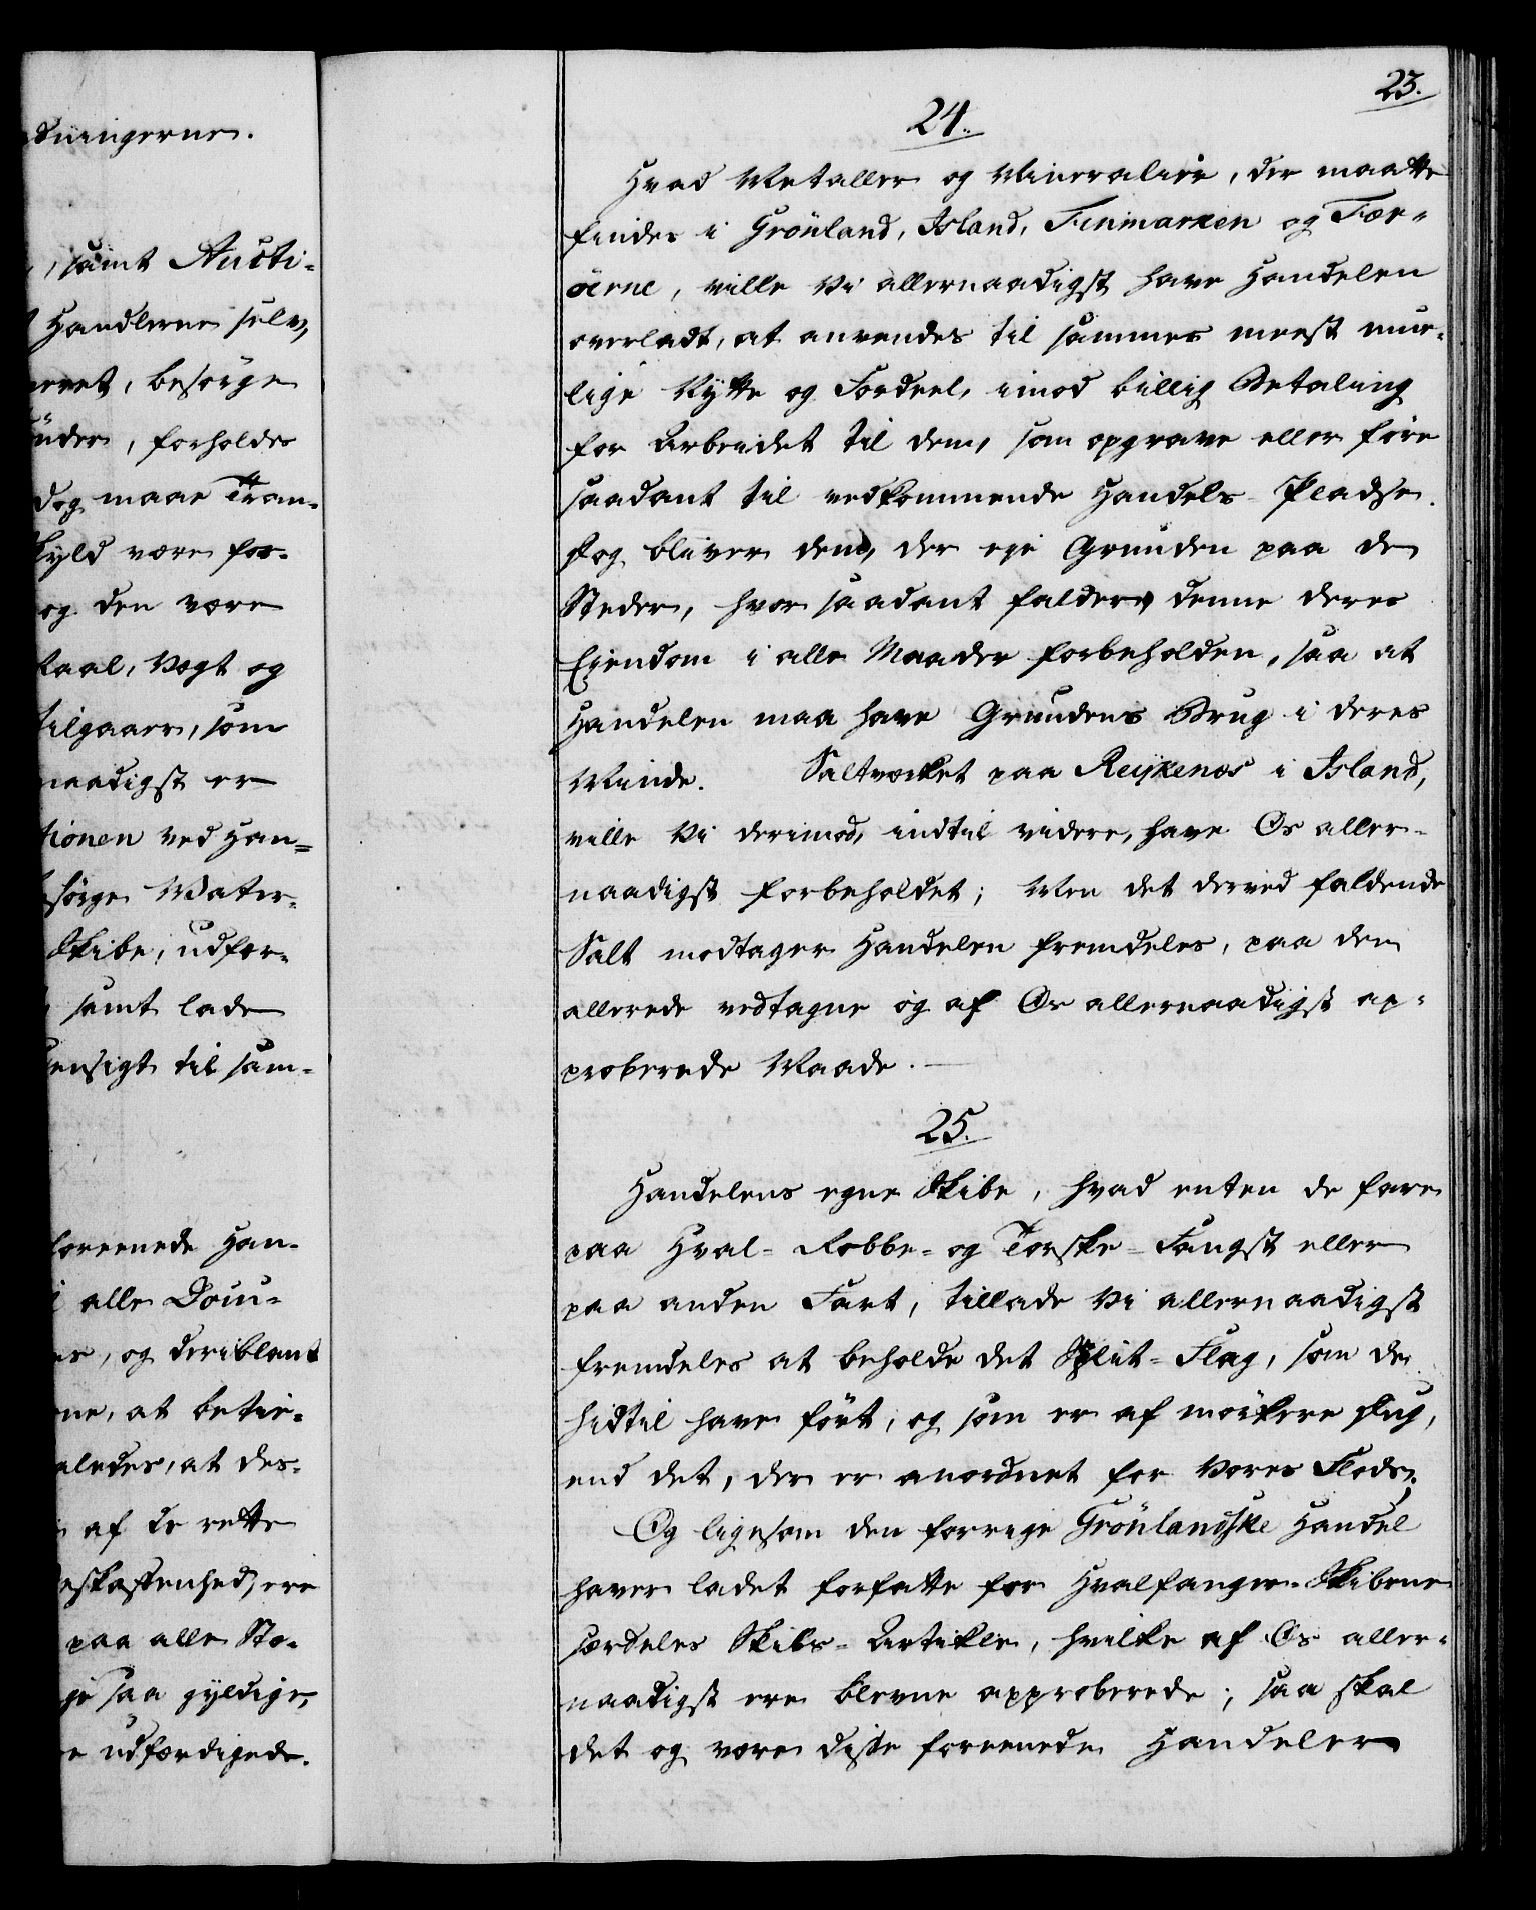 dningerne.
, samt Aucti-
Handlerne selv,
, besörge
, forholdes
dog maae Tran-
være for-
og den være
taal, Vogt og
tilgaaer, som
naadigst er
tionen ved Han-
sörge Mater-
Skibe, udfor-
samt lade
hensigt til sam-
foreenede Han-
i alle Dom-
es, og deriblant
ne, at betie-
aledes, at des-
af de rette
beskaffenhed, ere
paa alle Sta-
saa gyldige,
udfærdigede.
23.
24.
Hvad Metaller og Mineralier, der maatte
findes i Grönland, Island, Finmarken og Fær-
öerne, ville Vi allernaadigst have Handelen
overladt, at anvendes til sammes meest mue-
lige Nytte og Fordeel, imod billig Betaling
for Arbeidet til dem, som opgrave eller före
saadant til vedkommende Handels-Pladse.
Dog bliver dem, der eje Grunden paa de
Steder, hvor saadant falder, denne deres
Eiendom i alle Maader forbeholden, saa at
Handelen maa have Grundens Brug i deres
Minde. Saltværket paa Reykenæs i Island,
ville Vi derimod, indtil videre, have Os aller-
naadigst forbeholdet; Men det derved faldende
Salt modtager Handelen fremdeles, paa den
allerede vedtagne og af Os allernaadigst ap-
proberede Maade.
25.
Handelens egne Skibe, hvad enten de fare
paa Hval- Robbe- og Torske-Fangst eller
paa anden Fart, tillade Vi allernaadigst
fremdeles at beholde det Split-Flag, som de
hidtil have fört, og som er af mörkere Dug,
end det, der er anordnet for Vores Flode.
Og ligesom den forrige Grönlandske Handel
haver ladet forfatte for Hvalfanger-Skibene
særdeles Skibs-Artikler, hvilke af Os aller-
naadigst ere blevne approberede; saa skal
det og være disse foreenede Handeler